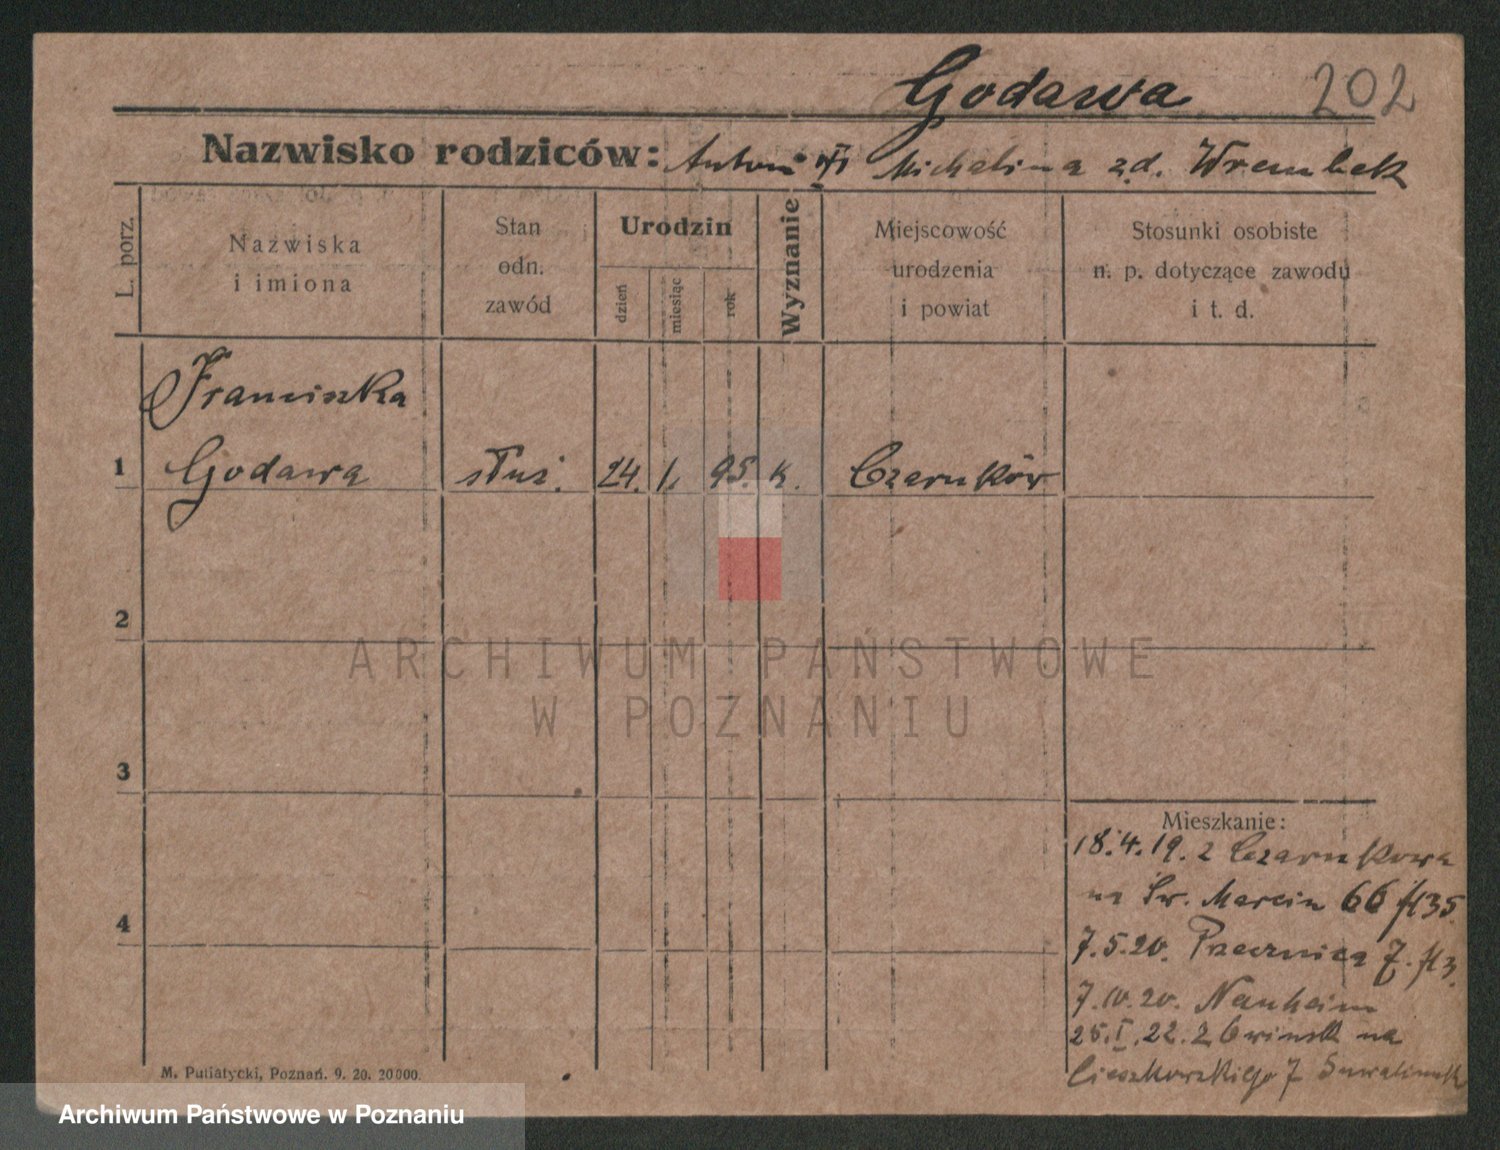 Godawa 202
Nazwisko rodziców: Antoni Michalina zd. Wrembek
L. porz.
Nazwiska
i imiona
Stan
odn.
zawód
Urodzin
dzień
miesiąc
rok
Wyznanie
Miejscowość
urodzenia
i powiat
Stosunki osobiste
n. p. dotyczące zawodu
i t. d.
Franciszka
1 Godawa służ. 24. 1. 95. k. Czarnków
2
ARCHIWUM PAŃSTWOWE
W POZNANIU
3
4
Mieszkanie:
18.4.19. z Czarnkowa
na Św. Marcin 66
7.5.20. Przecznica 7.
7.10.20. Nauheim
25.I.22. z Owinsk na
Cieszkowskiego 7
M. Putiatycki, Poznań. 9. 20. 20000.
Archiwum Państwowe w Poznaniu